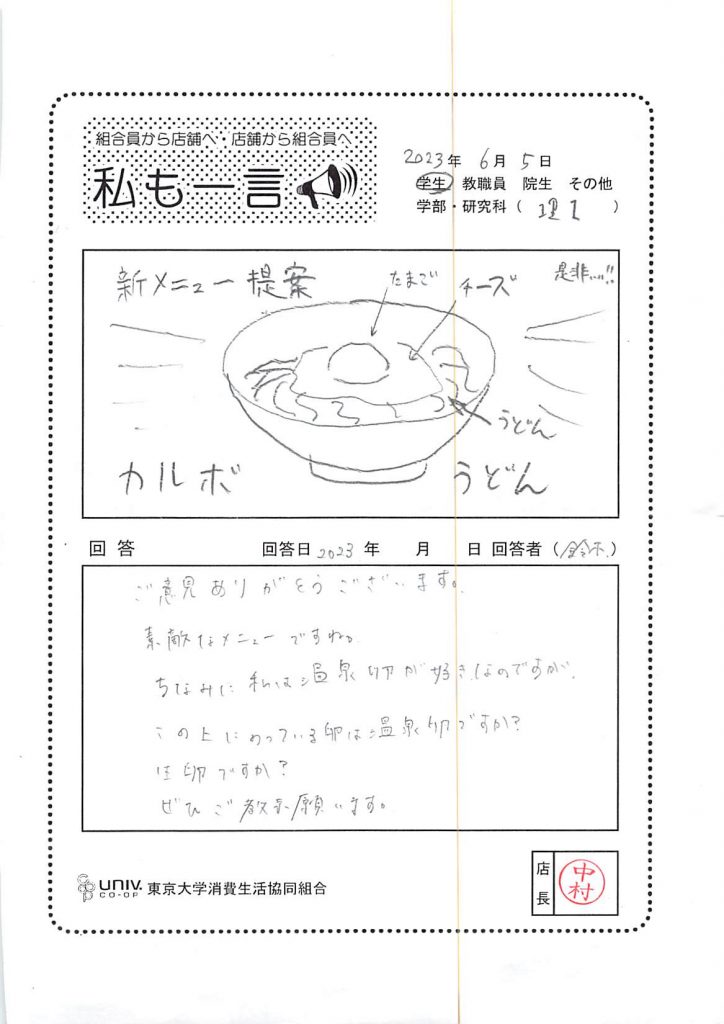 組合員から店舗へ・店舗から組合員へ
私も一言
2023年 6月 5日
学生 教職員 院生 その他
学部・研究科（ 理I ）
新メニュー提案
たまご
チーズ
是非...!!
うどん
カルボ うどん
回答 回答日 2023 年 月 日 回答者（鈴木）
ご意見ありがとうございます。
素敵なメニューですね。
ちなみに私は温泉卵が好きなのですが、
この上にのっている卵は温泉卵ですか?
生卵ですか?
ぜひご教示願います。
店長
中村
UNIV.
CO-OP
東京大学消費生活協同組合